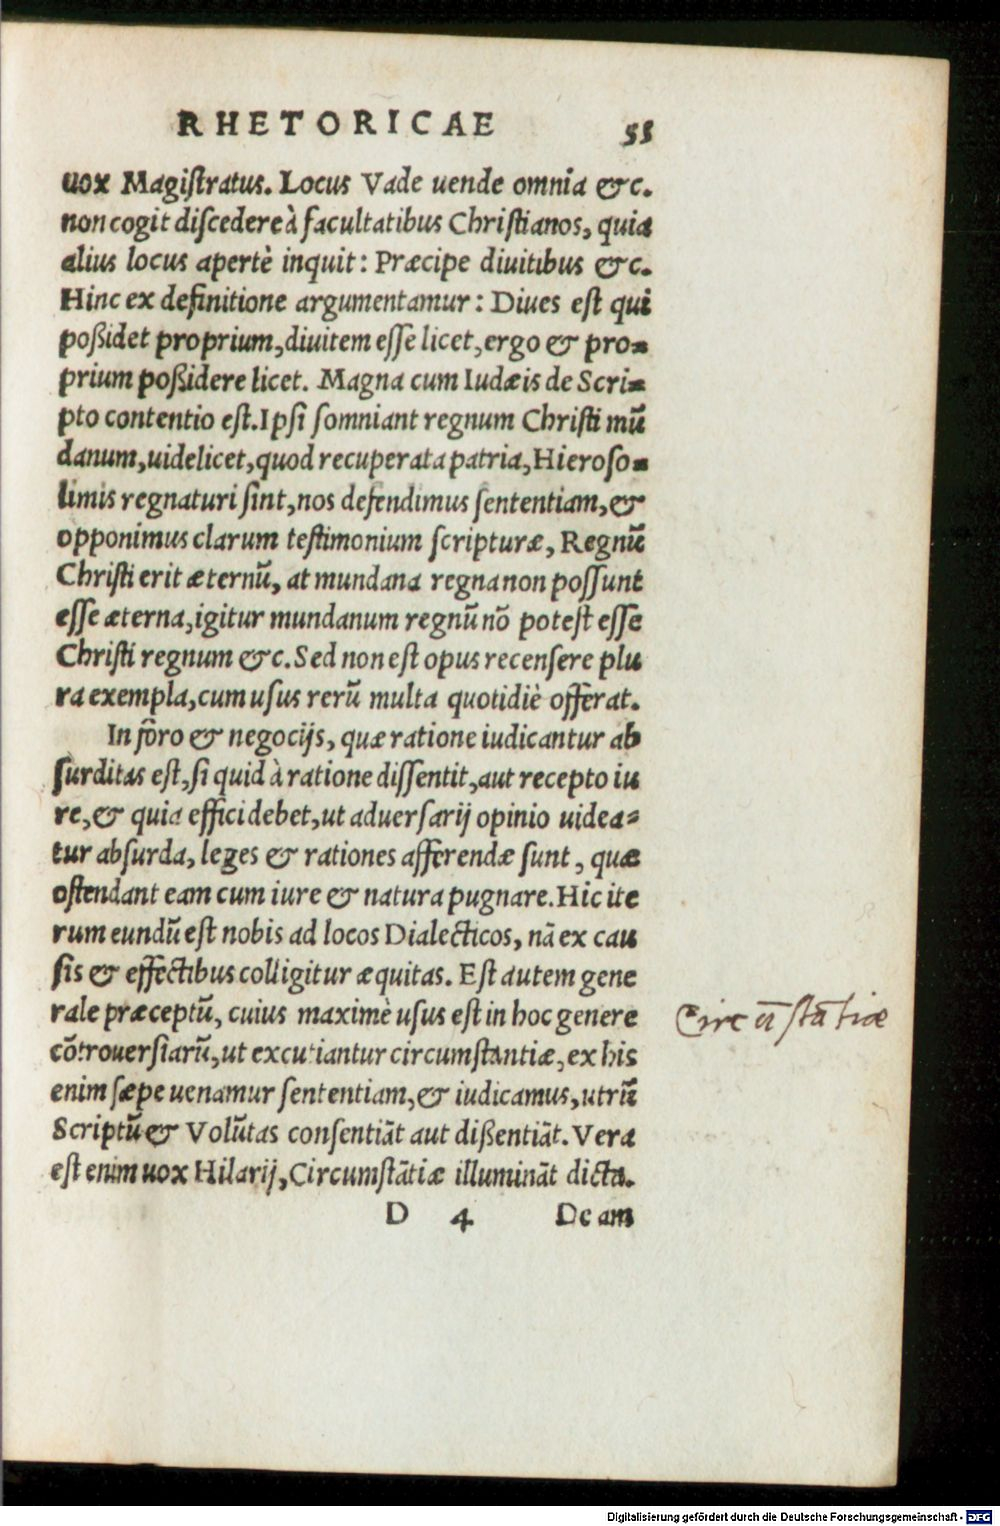 RHETORICAE 55
uox Magiſtratus. Locus Vade uende omnia &c.
non cogit diſcedere à facultatibus Chriſtianos, quia
alius locus apertè inquit: Præcipe diuitibus &c.
Hinc ex definitione argumentamur: Diues eſt qui
poßidet proprium, diuitem eſſe licet, ergo & pro-
prium poßidere licet. Magna cum Iudæis de Scri-
pto contentio eſt. Ipſi ſomniant regnum Chriſti mũ
danum, uidelicet, quod recuperata patria, Hieroſo-
limis regnaturi ſint, nos defendimus ſententiam, &
opponimus clarum teſtimonium ſcripturæ, Regnũ
Chriſti erit æternũ, at mundana regna non poſſunt
eſſe æterna, igitur mundanum regnũ nõ poteſt eſſe
Chriſti regnum &c. Sed non eſt opus recenſere plu
ra exempla, cum uſus rerũ multa quotidiè offerat.
In foro & negocijs, quæ ratione iudicantur ab
ſurditas eſt, ſi quid à ratione diſſentit, aut recepto iu
re, & quia effici debet, ut aduerſarij opinio uidea-
tur abſurda, leges & rationes afferendæ ſunt, quæ
oſtendant eam cum iure & natura pugnare. Hic ite
rum eundũ eſt nobis ad locos Dialecticos, nã ex cau
ſis & effectibus colligitur æquitas. Eſt autem gene
rale præceptũ, cuius maximè uſus eſt in hoc genere
cõtrouerſiarũ, ut excutiantur circumſtantiæ, ex his
enim ſæpe uenamur ſententiam, & iudicamus, utrũ
Scriptũ & Volũtas conſentiãt aut dißentiãt. Vera
eſt enim uox Hilarij, Circumſtãtiæ illuminãt dicta.
D 4 De am
Circũſtãtiæ
Digitalisierung gefördert durch die Deutsche Forschungsgemeinschaft - DFG